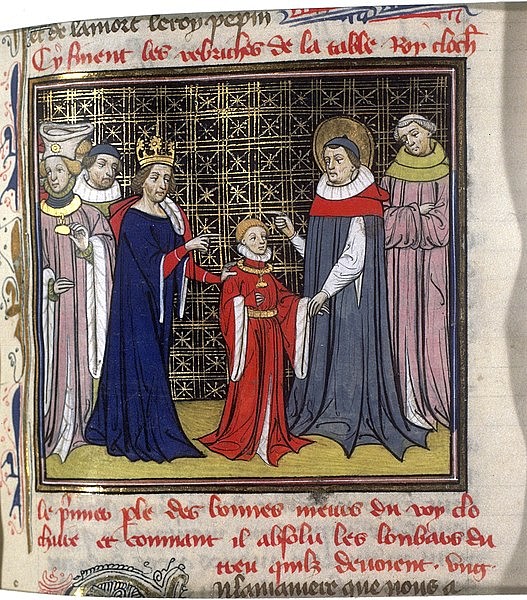 et de la mort le roy pepin
Cy finent les rebriches de la table Roy cloth
le pmier ple des bonnes meurs du roy clo
thaire et comant il absolu les lonbars du
treu quilz devoient . vng .
n la maniere que nous a